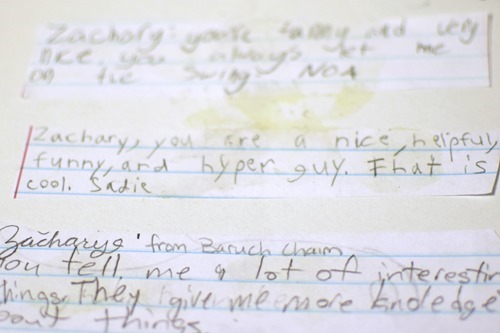 Zachory: you're funny and very
nice. you always let me
on the swing NOA
Zachary, you are a nice, helpful,
funny, and hyper guy. That is
cool. Sadie
Zacharys' from Baruch Chaim
You tell me a lot of interestin
things. They give me more knoledge
bout things.